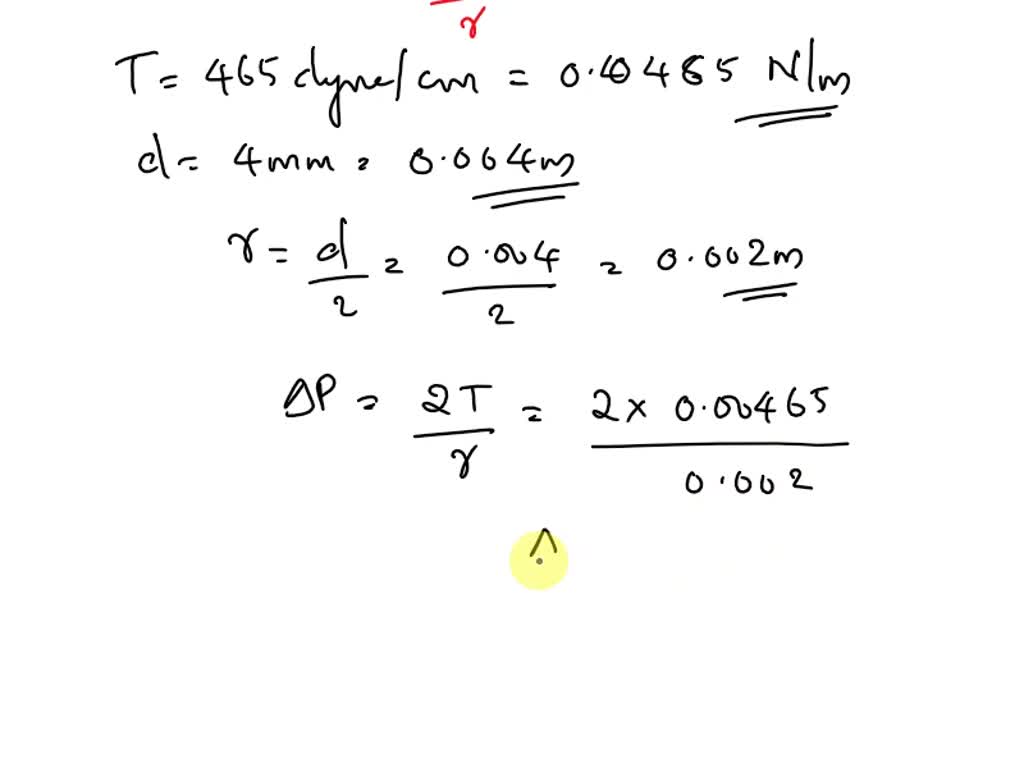 r
T = 465 dyne/cm = 0.00465 N/m
d = 4mm = 0.004m
r = d/2 = 0.004/2 = 0.002m
ΔP = 2T/r = 2 x 0.00465/0.002